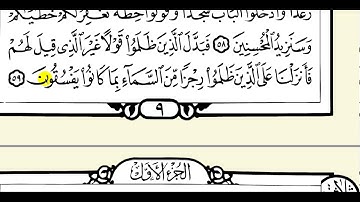 رَغَدًا وَادْخُلُوا الْبَابَ سُجَّدًا وَقُولُوا حِطَّةٌ نَغْفِرْ لَكُمْ خَطَايَاكُمْ
وَسَنَزِيدُ الْمُحْسِنِينَ ۝٥٨ فَبَدَّلَ الَّذِينَ ظَلَمُوا قَوْلًا غَيْرَ الَّذِي قِيلَ لَهُمْ
فَأَنْزَلْنَا عَلَى الَّذِينَ ظَلَمُوا رِجْزًا مِنَ السَّمَاءِ بِمَا كَانُوا يَفْسُقُونَ ۝٥٩
٩
الجزء الأول